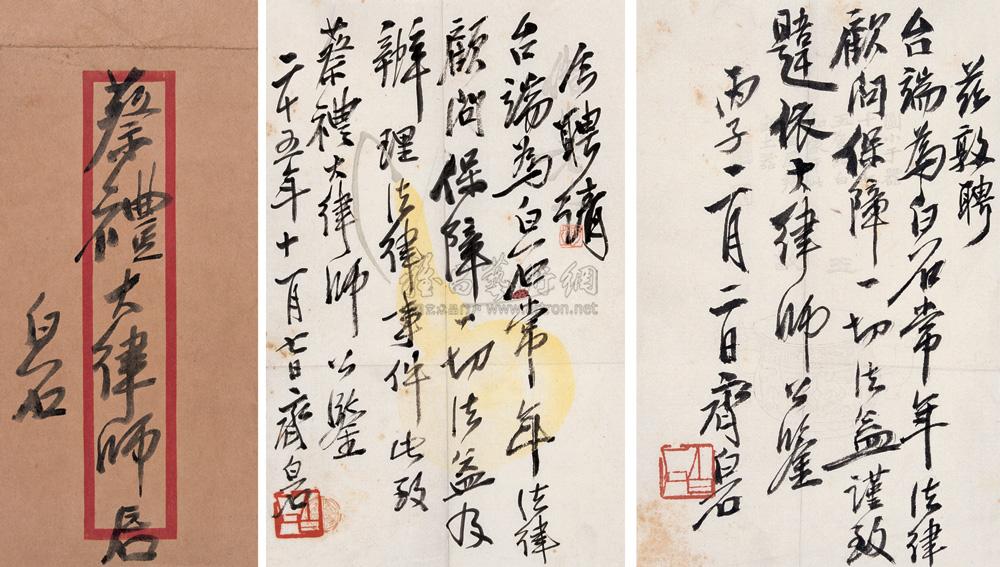 蔡禮大律師
白石
今聘請
台端為白石常年法律
顧問保障一切法益及
辦理法律事件此致
蔡禮大律師公鑒
二十五年十一月七日齊白石
茲敦聘
台端為白石常年法律
顧問保障一切法益謹致
大律師公鑒
丙子月二日齊白石